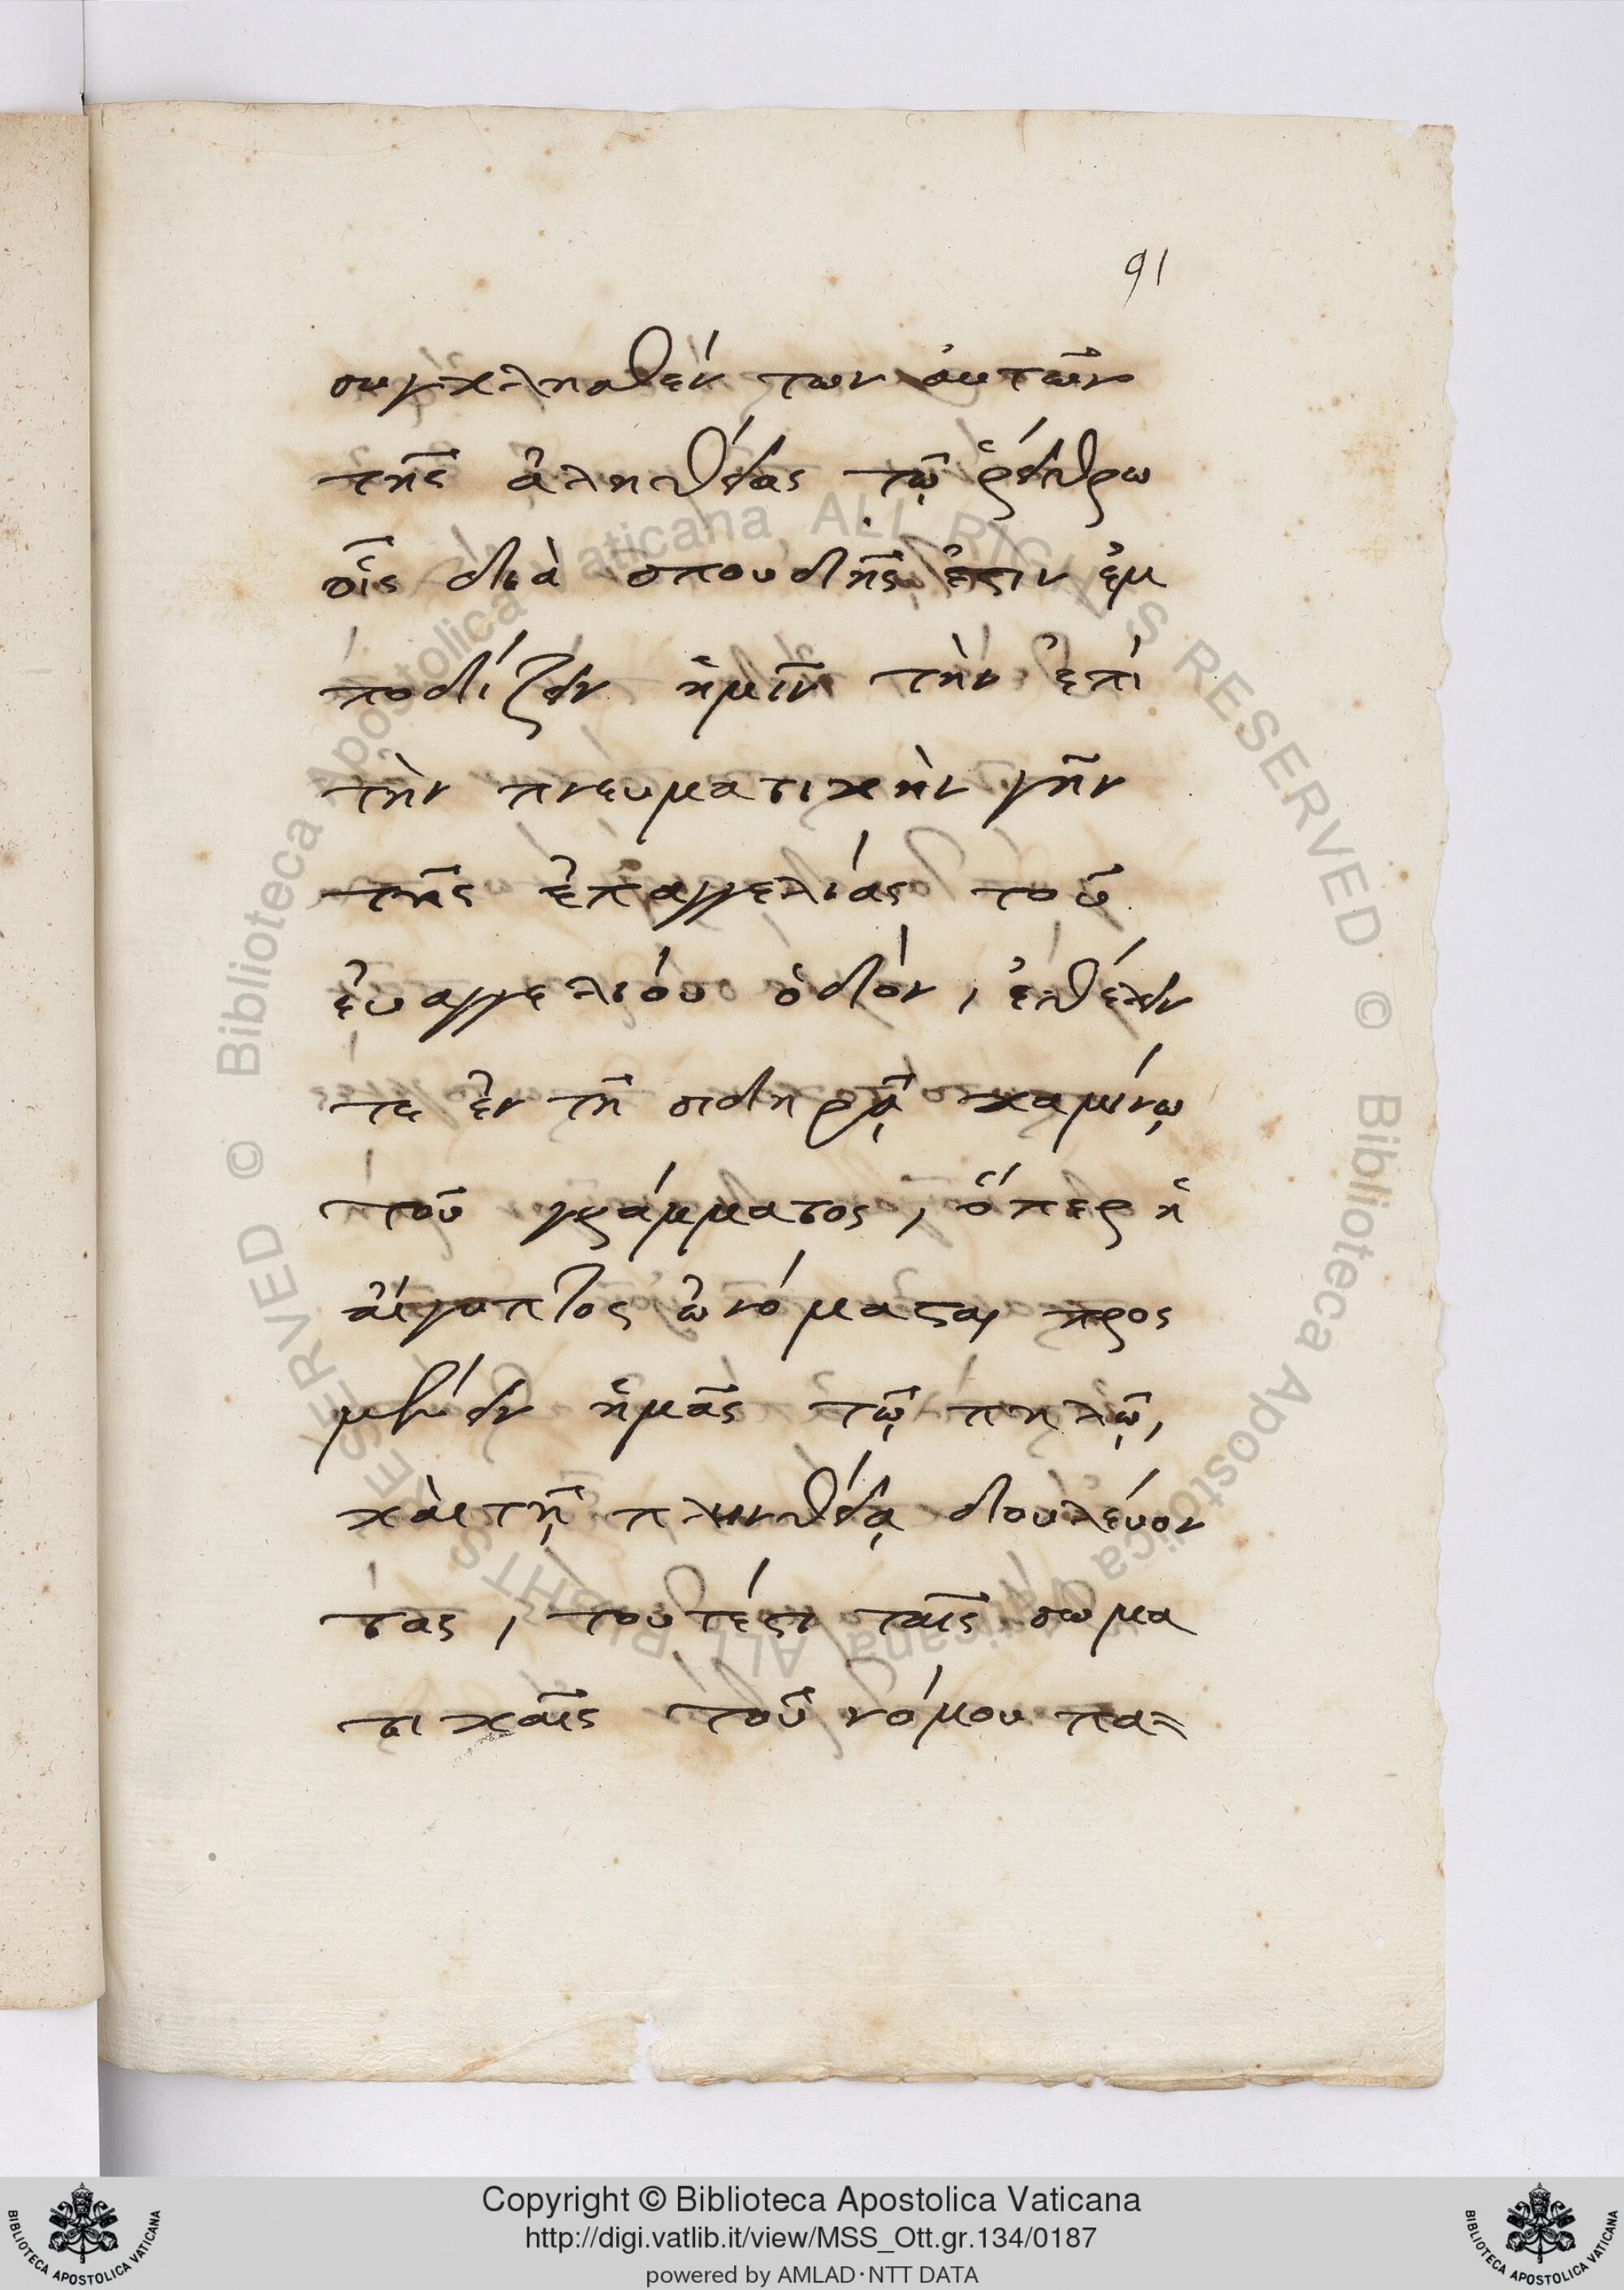 91
συγκλησθέν των ἀυτῶν
τῆς ἀληθείας τῷ ῥείθρω
οἷς διὰ σπουδῆς ἐστιν ἐμ
ποδίζειν ἡμῖν τὴν ἐπὶ
τὴν πνευματικὴν γῆν
τῆς ἐπαγγελίας τοῦ
ἐυαγγελίου ὁδόν, ἐθέλειν
τε ἐν τῆ σιδηρᾷ καμίνῳ
τοῦ γράμματος, ὅπερ ἡ
ἀίγυπτος ὠνόμασται προς
μένειν ἡμᾶς τῷ πηλῷ,
κὰι τῇ πλινθείᾳ δουλέυον
τας, τουτέστι ταῖς σωμα
τικαῖς τοῦ νόμου πα=
© Biblioteca Apostolica Vaticana ALL RIGHTS RESERVED © Biblioteca Apostolica Vaticana ALL RIGHTS RESERVED
Copyright © Biblioteca Apostolica Vaticana
http://digi.vatlib.it/view/MSS_Ott.gr.134/0187
powered by AMLAD·NTT DATA
BIBLIOTECA APOSTOLICA VATICANA
BIBLIOTECA APOSTOLICA VATICANA